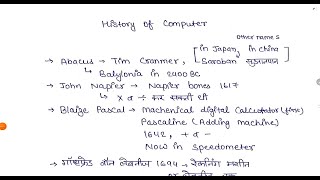 History of Computer
other names
→ Abacus → Tim Cranmer, [in Japan, in China
↳ Babylonia in 2400 BC [Soroban
→ John Napier → Napier bones 1617
↳ × σ ÷ कर सकती थी
→ Blaize Pascal → Machenical digital Calculator (fine)
Pascaline (Adding machine)
1642, + σ -
NOW in Speedometer
→ गॉटफ्रेड वॉन लेबनीज 1694 → रेकनिंग मशीन